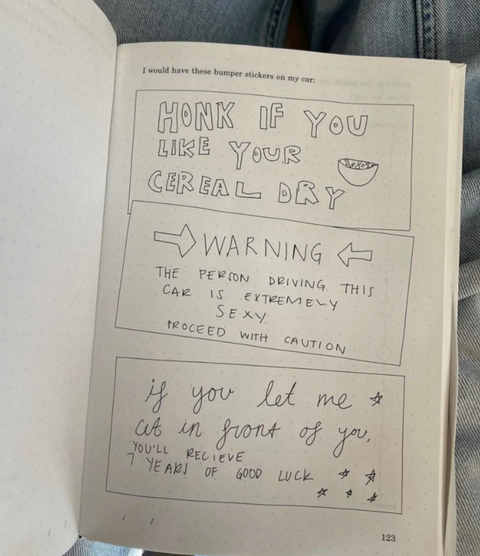 I would have these bumper stickers on my car:
HONK IF YOU
LIKE YOUR
CEREAL DRY
WARNING
THE PERSON DRIVING THIS
CAR IS EXTREMELY
SEXY.
PROCEED WITH CAUTION
if you let me
cut in front of you,
YOU'LL RECIEVE
7 YEARS OF GOOD LUCK
123